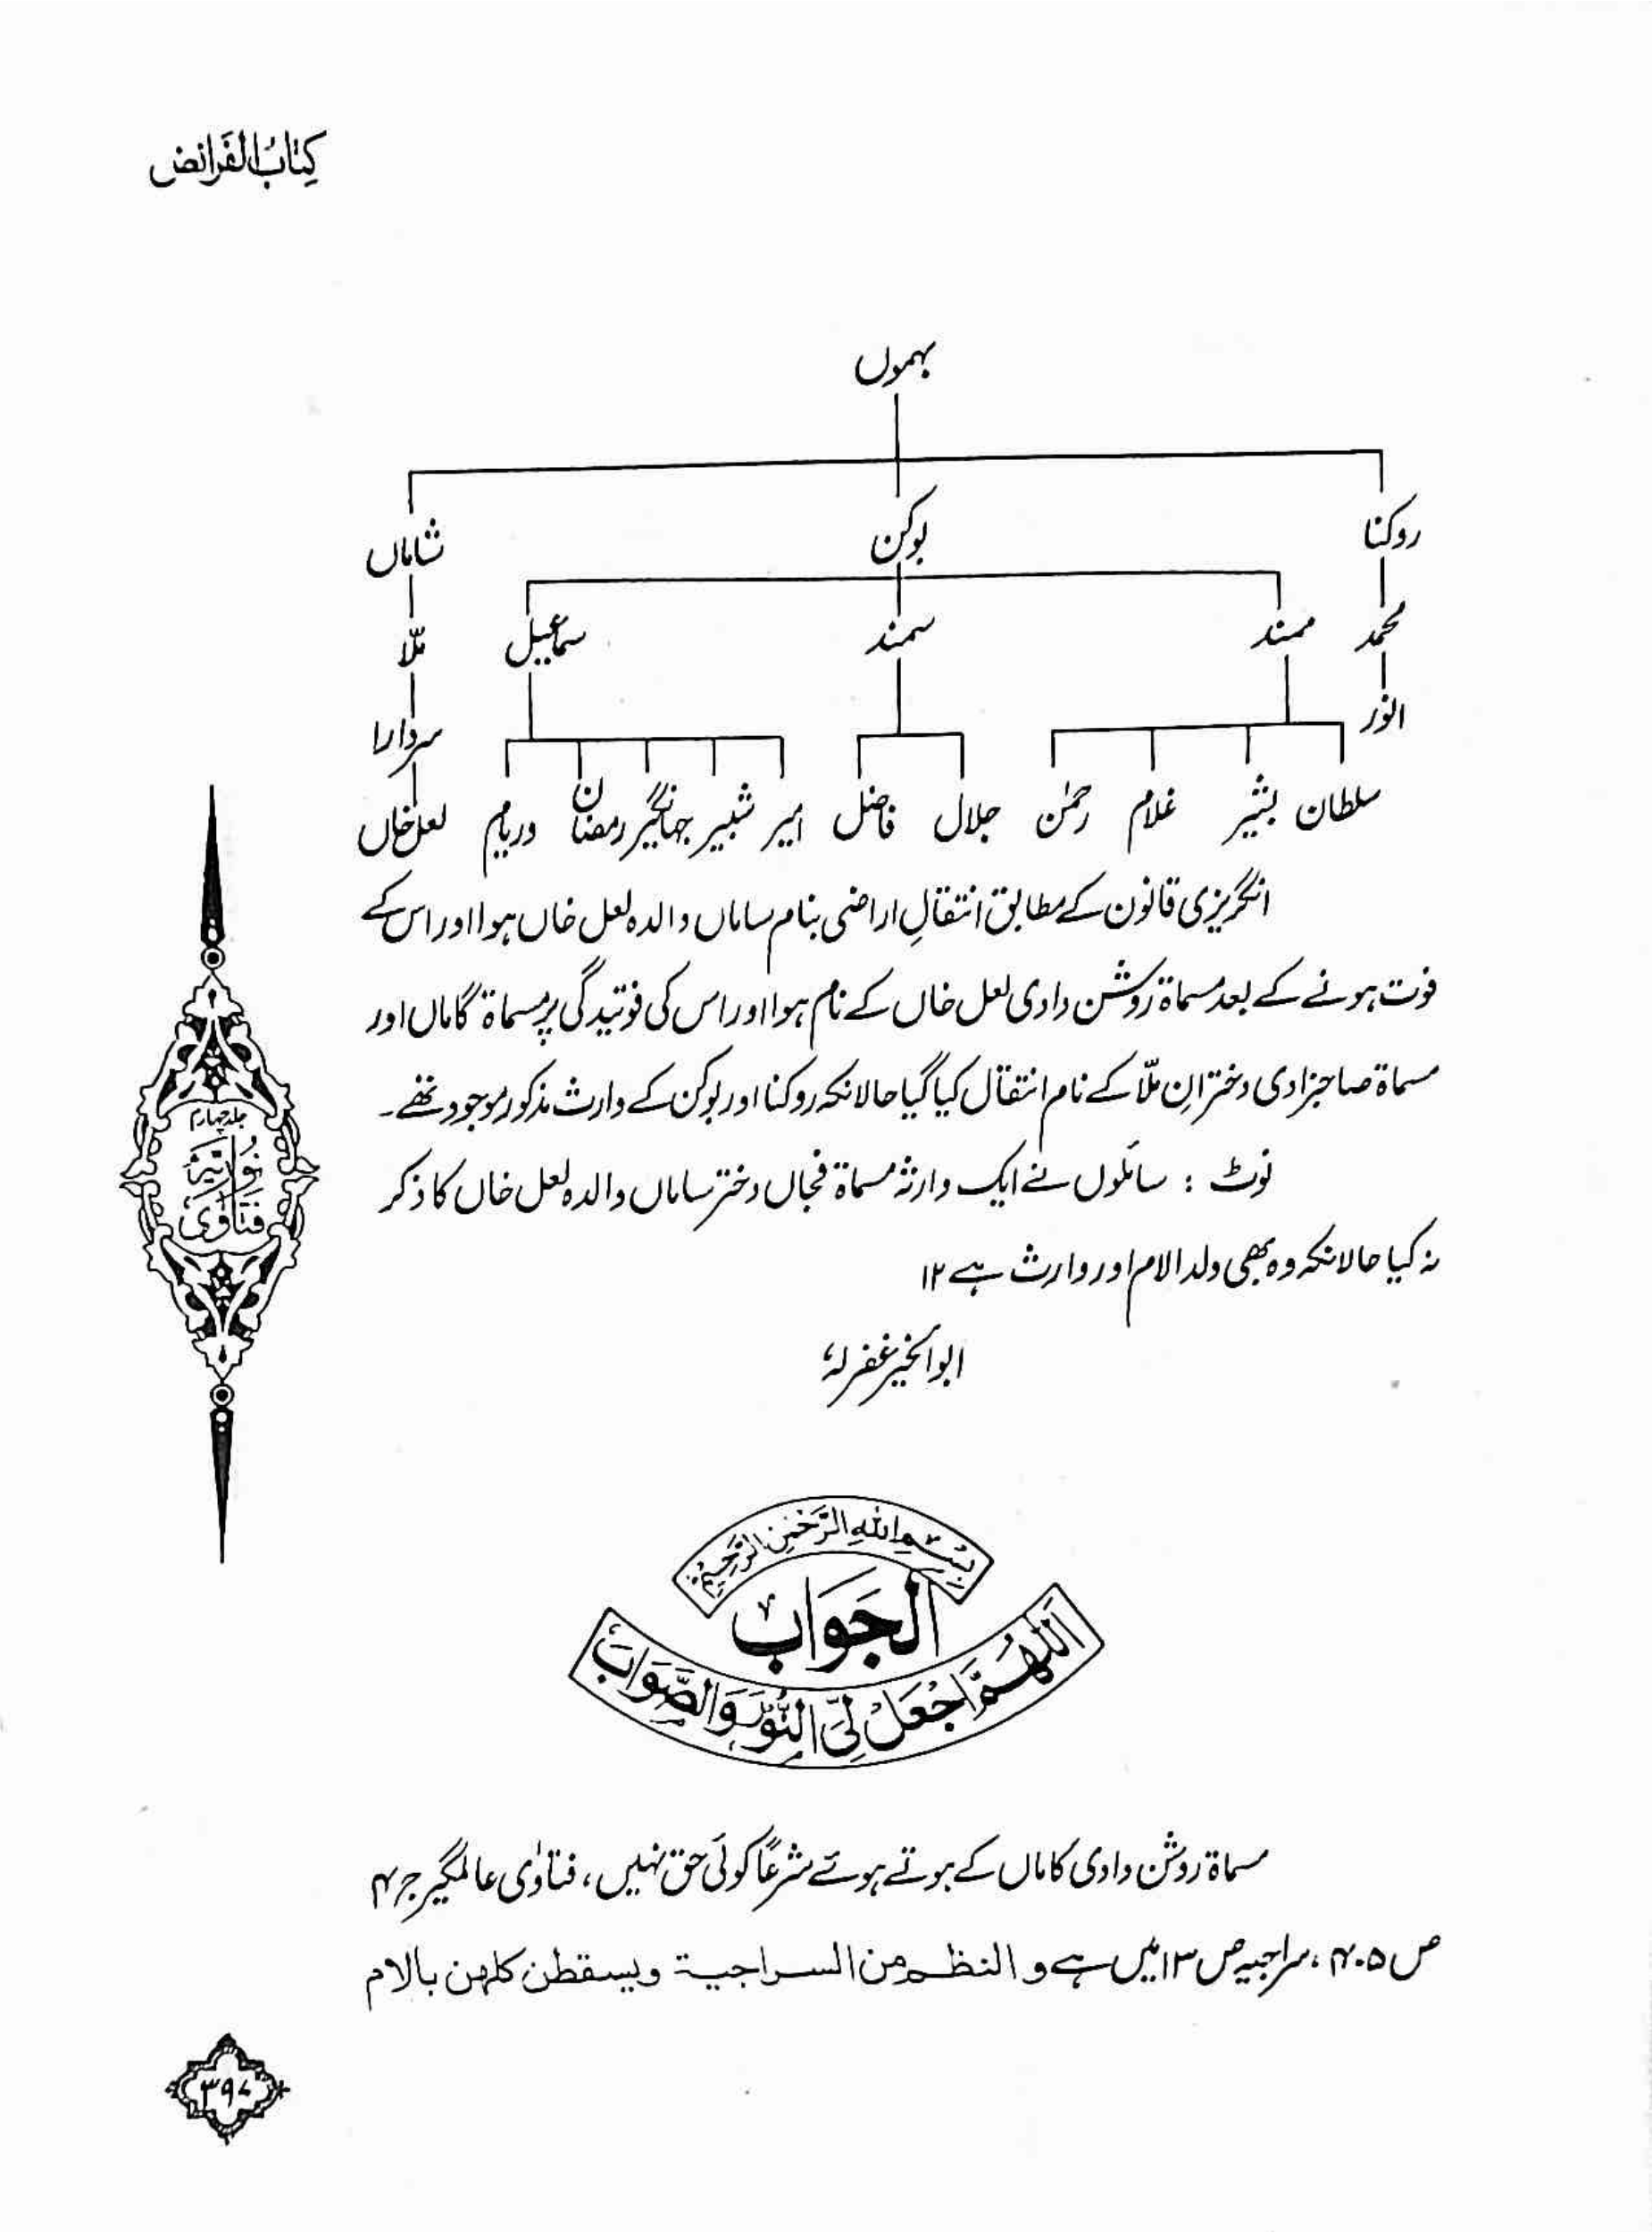 کِتَابُ الفَرائض
بہموں
روکنا بوکن شاماں
محمد ممند سمند سماعیل ملّا
انور سردارا
سلطان بشیر غلام رحمٰن جلال فاضل امیر شبیر جہانگیر رمضان وریام لعل خاں
انگریزی قانون کے مطابق انتقالِ اراضی بنام ساماں والدہ لعل خاں ہوا اور اس کے
فوت ہونے کے بعد مسماۃ روشن دادی لعل خاں کے نام ہوا اور اس کی فوتیدگی پر مسماۃ گاماں اور
مسماۃ صاحبزادی دخترانِ ملّا کے نام انتقال کیا گیا حالانکہ روکنا اور بوکن کے وارث مذکور موجود تھے۔
نوٹ : سائلوں نے ایک وارثہ مسماۃ فجاں دختر ساماں والدہ لعل خاں کا ذکر
نہ کیا حالانکہ وہ بھی ولد الام اور وارث ہے ۱۲
ابوالخیر غفرلہٗ
جلد چہارم
نُورِیَّہ
فَتَاوٰی
بِسْمِ اللهِ الرَّحْمٰنِ الرَّحِيْمِ
اَلجَوَابُ
اَللّٰهُمَّ اجْعَلْ لِيَ النُّوْرَ وَالصَّوَابَ
مسماۃ روشن دادی کا ماں کے ہوتے ہوئے شرعًا کوئی حق نہیں، فتاوٰی عالمگیر ج ۴
ص ۴۰۵، سراجیہ ص ۱۳ میں ہے و النظم من السراجیۃ ویسقطن کلھن بالام
۳۹۷